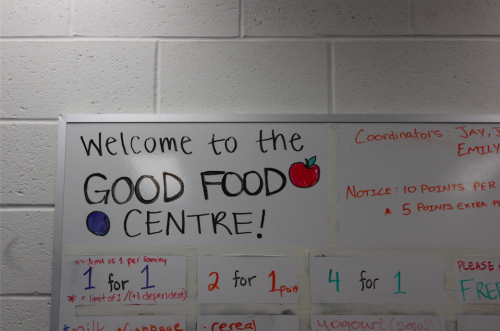 Welcome to the
GOOD FOOD
CENTRE!
Coordinators: JAY, J
EMILY
NOTICE: 10 POINTS PER
* 5 POINTS EXTRA
= limit of 1 per family
1 for 1
* = limit of 1 /(+1 dependent)
2 for 1 point
4 for 1
PLEASE
FREE
cereal
yogourt (small)